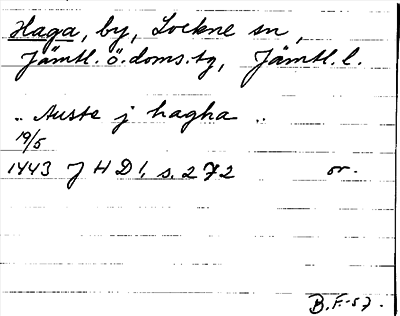 Haga, by, Lockne sn,
Jämtl. ö. doms.tg, Jämtl. l.
.. Auste j hagha ..
19/5
1443 JHD 1, s. 272 or.
B.F.-57.